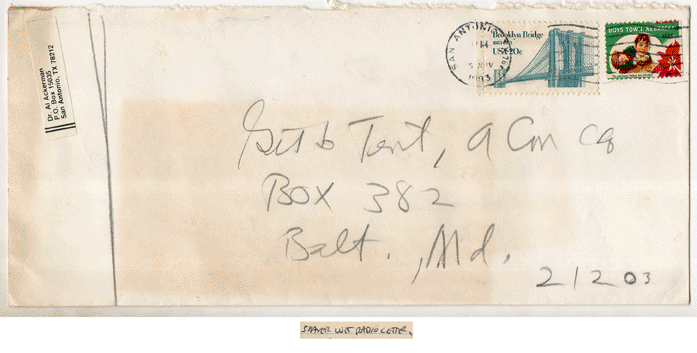 Dr. Al Ackerman
P.O. Box 15035
San Antonio, TX 78212
SAN ANTONIO
PM
1983
Brooklyn Bridge
1883-1983
USA 20c
BOYS TOWN, Nebraska
Tent, a
BOX 382
Balt., Md.
21203
RADIO LETTER.